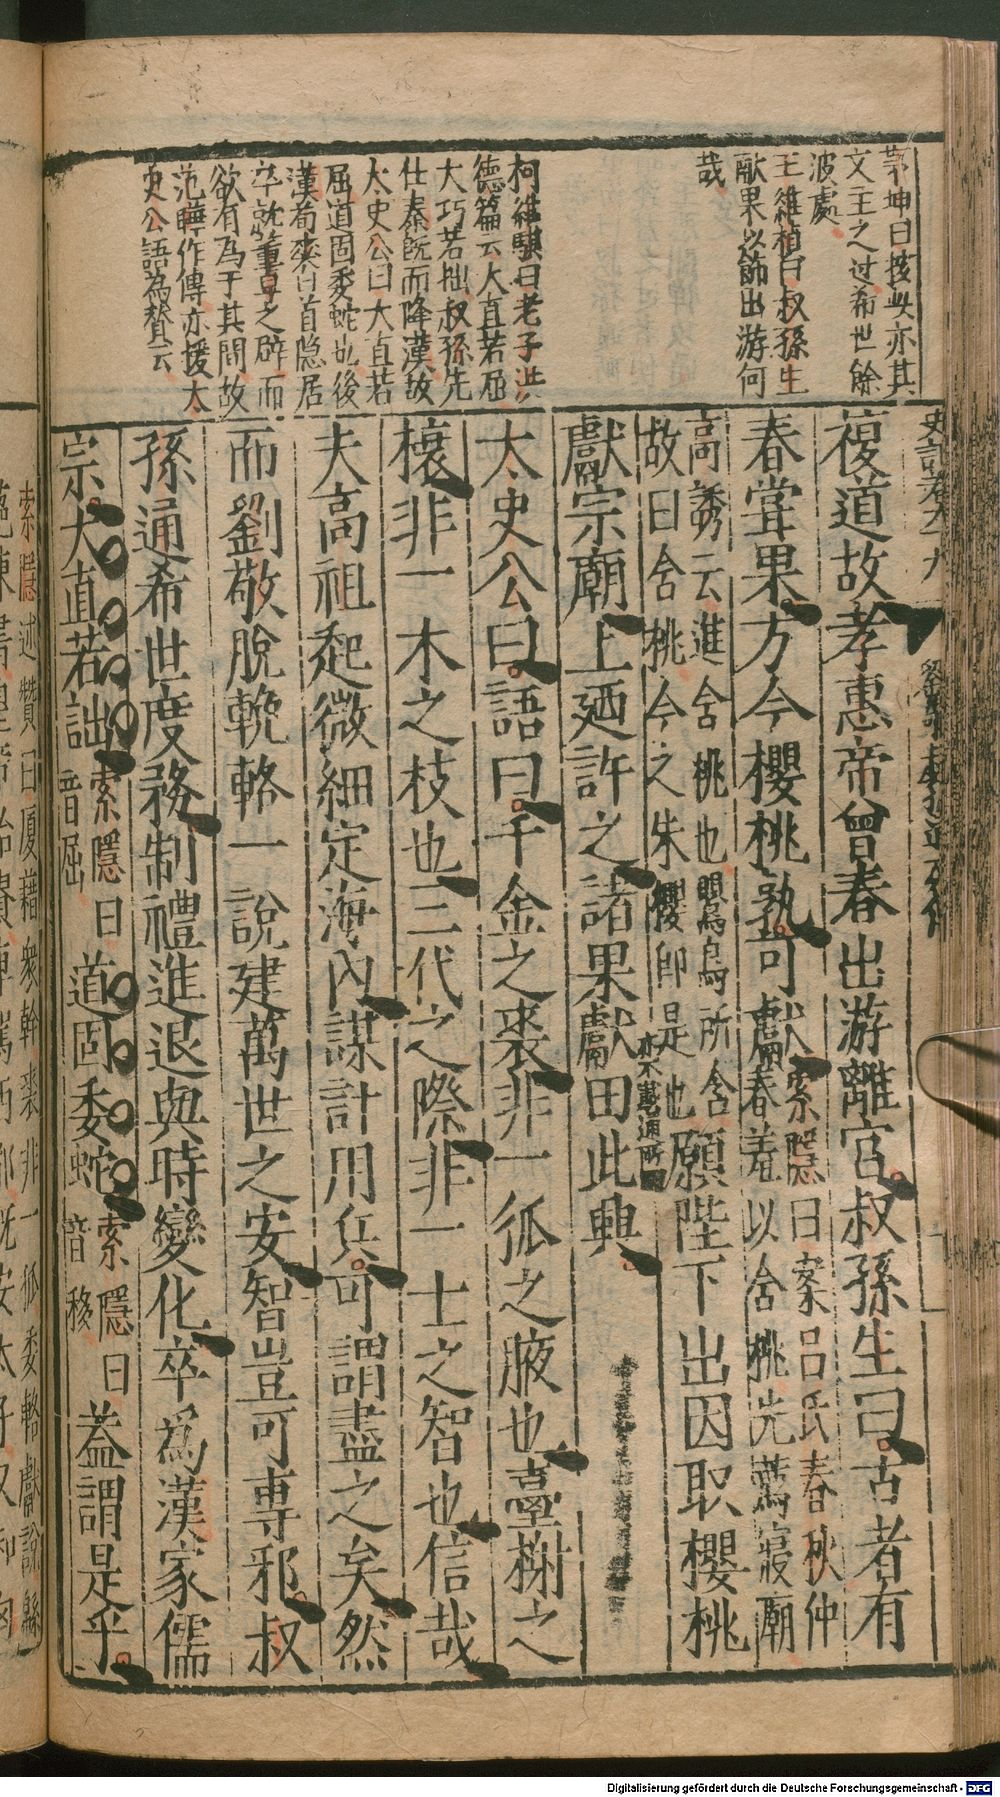 史記卷九十九
茅坤曰按此亦其
文主之过希世餘
波處
王維楨曰叔孫生
献果以飾出游何
哉
柯維騏曰老子洪
德篇云大直若屈
大巧若拙叔孫先
仕秦既而降漢故
太史公曰大直若
屈道固委蛇也後
漢荀爽白首隐居
卒就董卓之辟而
欲有為于其間故
范曄作傳亦援太
史公語為賛云
複道故孝惠帝曾春出游離宫叔孫生曰古者有
春甞果方今櫻桃孰可獻
索隱曰案吕氏春秋仲
春羞以含桃先薦寢廟
高誘云進含桃也鸎鳥所含
故曰含桃今之朱櫻即是也
願陛下出因取櫻桃
獻宗廟上廼許之諸果獻由此興
太史公曰語曰千金之裘非一狐之腋也臺榭之
榱非一木之枝也三代之際非一士之智也信哉
夫高祖起微細定海內謀計用兵可謂盡之矣然
而劉敬脫輓輅一說建萬世之安智豈可專邪叔
孫通希世度務制禮進退與時變化卒爲漢家儒
宗大直若詘
索隱曰
音屈
道固委蛇
索隱曰
音移
葢謂是乎
索隱述贊曰厦藉衆幹裘非一狐委輅獻說緜
Digitalisierung gefördert durch die Deutsche Forschungsgemeinschaft - DFG